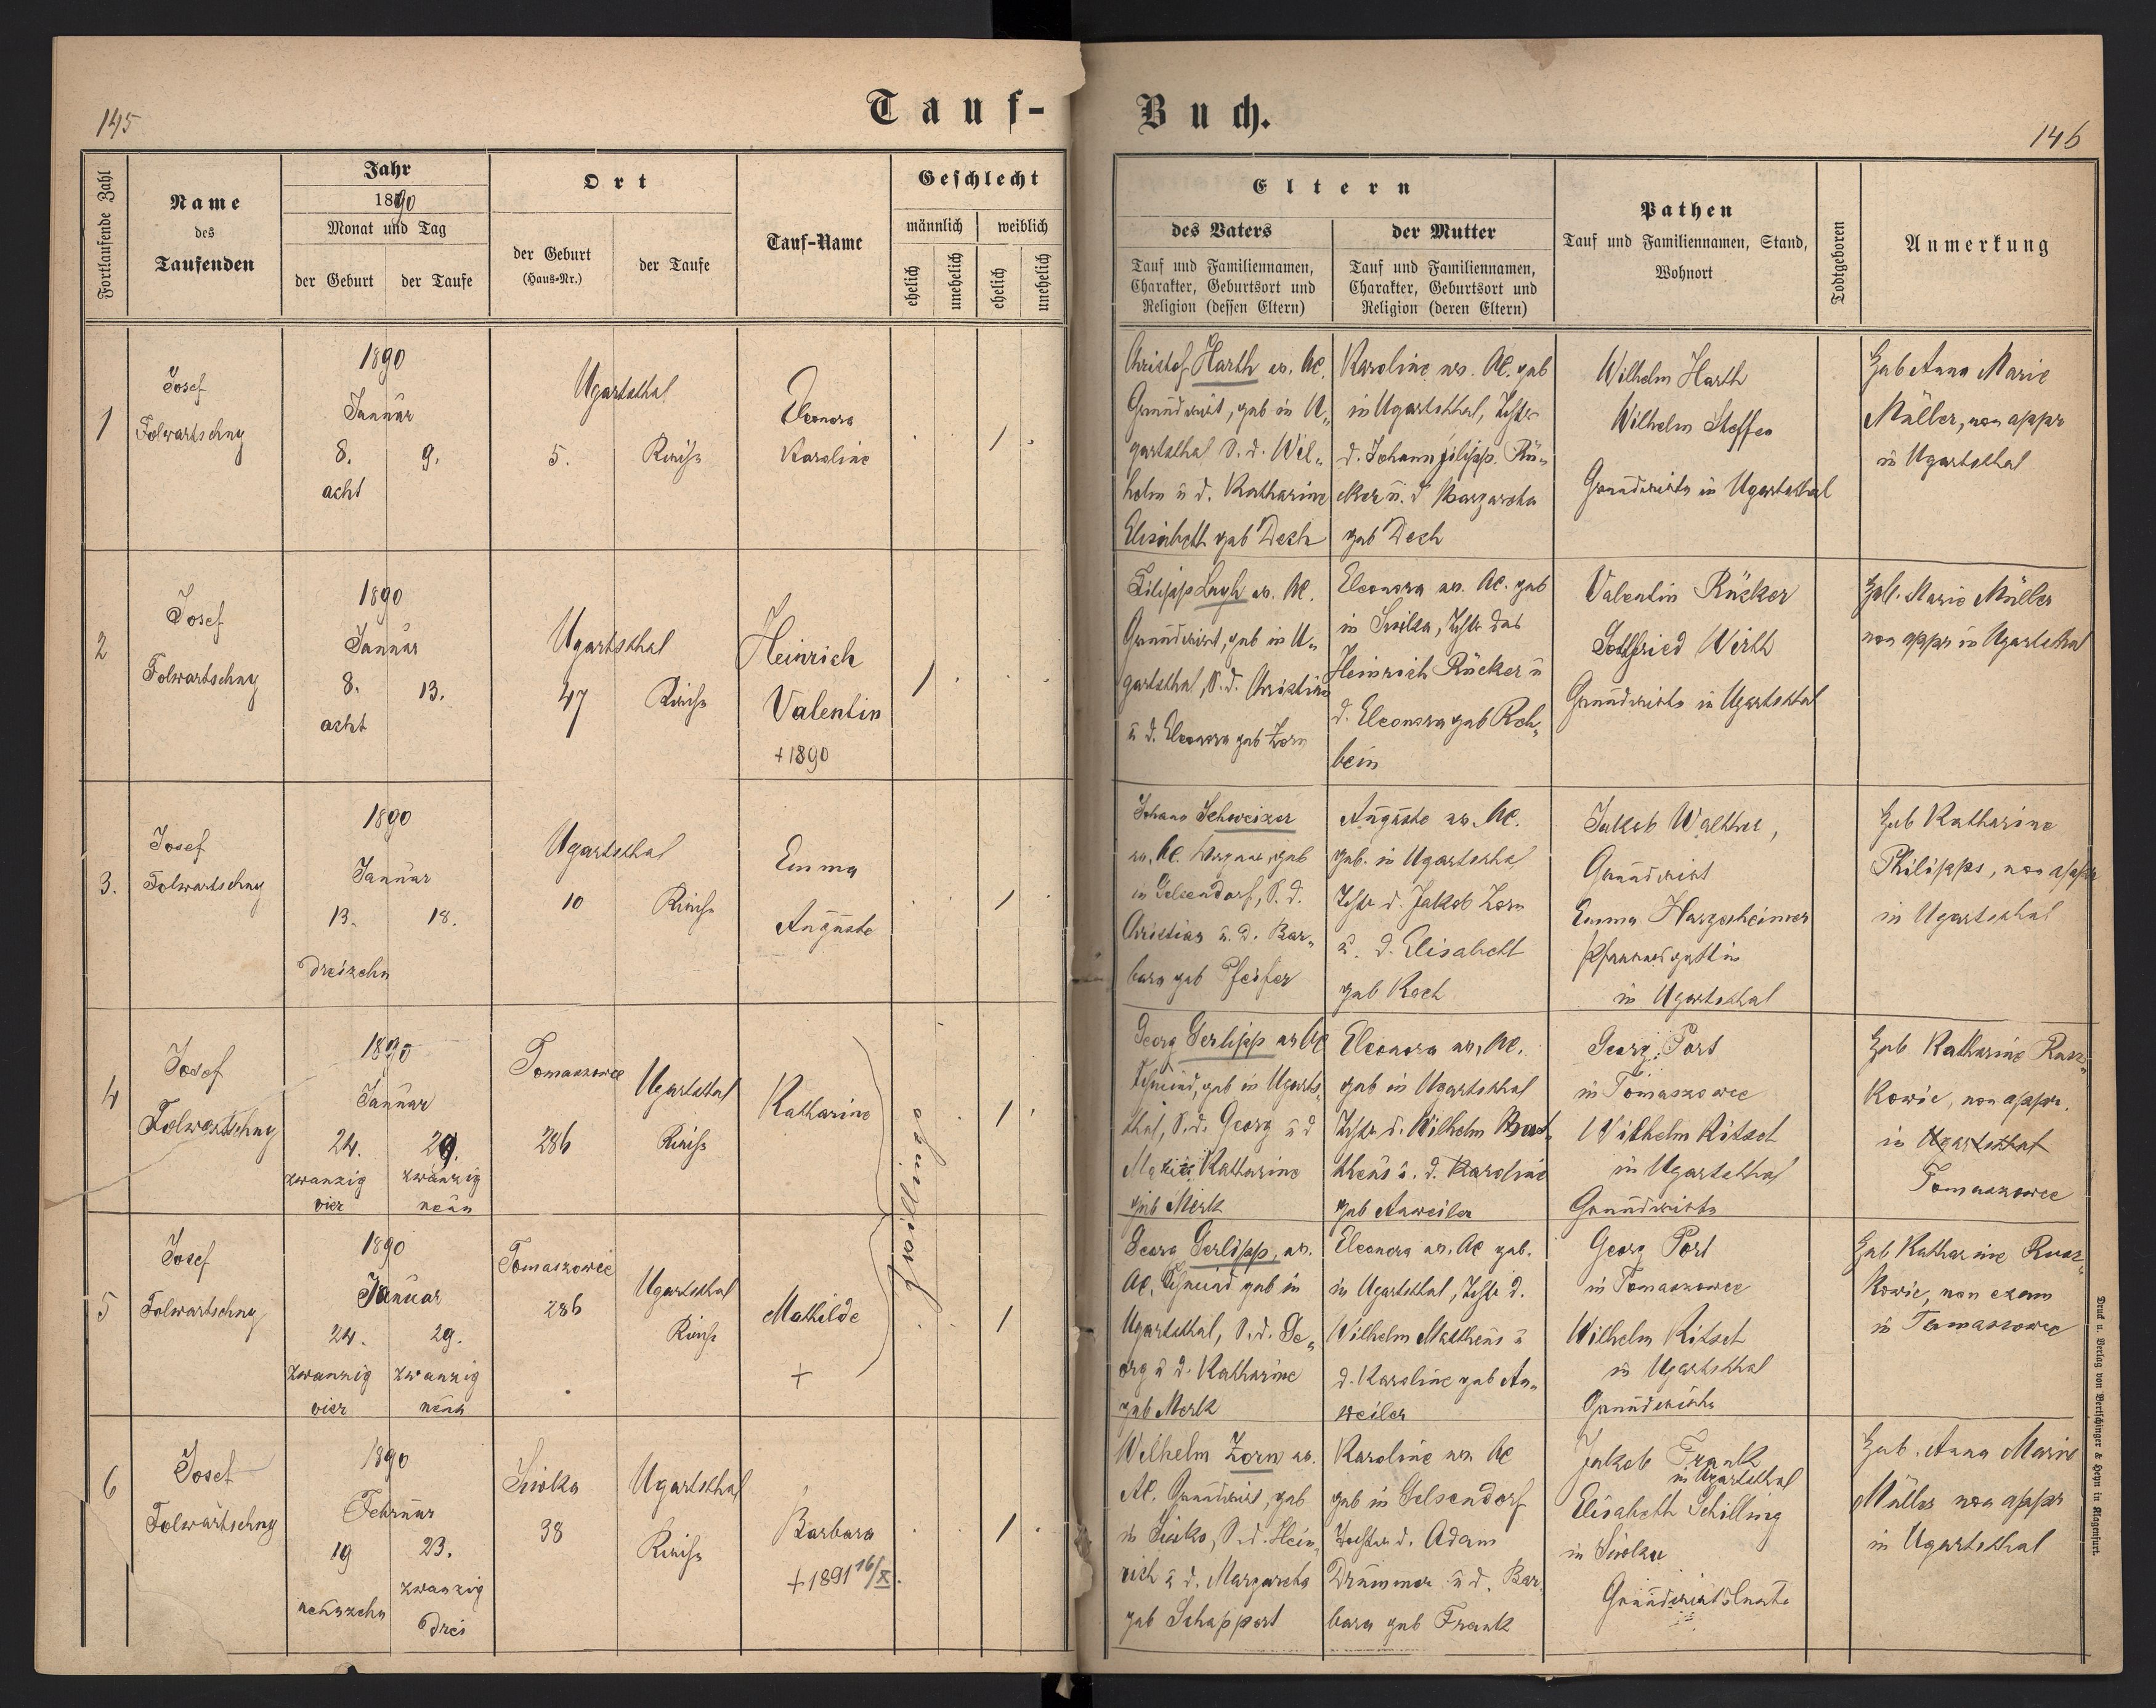 145
Tauf-
Buch.
146
Fortlaufende Zahl
Name
des
Taufenden
Jahr
1890
Monat und Tag
der Geburt
der Taufe
Ort
der Geburt
(Haus-Nr.)
der Taufe
Tauf-Name
Geschlecht
männlich
weiblich
ehelich
unehelich
ehelich
unehelich
Eltern
des Vaters
Tauf und Familiennamen,
Charakter, Geburtsort und
Religion (dessen Eltern)
der Mutter
Tauf und Familiennamen,
Charakter, Geburtsort und
Religion (deren Eltern)
Pathen
Tauf und Familiennamen, Stand,
Wohnort
Todtgeboren
Anmerkung
1
Josef
Folwartschny
1890
Januar
8.
9.
acht
Ugartsthal
5.
Kirche
Eleonora
Karoline
1
Christof Harth ev. AC.
Grundwirt, geb in U„
gartsthal S. d. Wil„
helm u d. Katharine
Elisabeth geb Desch
Karoline ev. AC. geb
in Ugartsthal, Tchtr
d. Johann Filipp Rü„
cker u. d Margareta
geb Desch
Wilhelm Harth
Wilhelm Steffen
Grundwirte in Ugartsthal
Heb Anna Marie
Müller, non appr
in Ugartsthal
2
Josef
Folwartschny
1890
Januar
8.
13.
acht
Ugartsthal
47
Kirche
Heinrich
Valentin
+ 1890
1
Filipp ev. AC.
Grundwirt, geb in U„
gartsthal, S. d. Christian
u d. Eleonora geb Zorn
Eleonora ev. AC. geb
in Siwka, Tchtr des
Heinrich Rücker u
d. Eleonora geb Reh„
bein
Valentin Rücker
Gottfried Wirth
Grundwirte in Ugartsthal
Heb. Marie Müller
non appr in Ugartsthal
3.
Josef
Folwartschny
1890
Januar
13.
18.
dreizehn
Ugartsthal
10
Kirche
Emma
Auguste
1
Johann Schweizer
ev. AC. Wagner, geb
in Gelsendorf, S. d.
Christian u. d. Bar„
bara geb Pfeifer
Auguste ev. AC.
geb. in Ugartsthal
Tchtr d. Jakob Zorn
u. d. Elisabeth
geb Koch
Jakob Walther,
Grundwirt
Emma Hargesheimer
Pfarrersgattin
in Ugartsthal
Heb Katharine
Philipps, non appr
in Ugartsthal
4
Josef
Folwartschny
1890
Januar
24.
29.
zwanzig
vier
zwanzig
neun
Tomaszowce
286
Ugartsthal
Kirche
Katharine
Zwillinge
1
Georg Gerlipp ev AC
Schmied, geb in Ugarts„
thal, S. d. Georg u d
Marie Katharine
geb Merk
Eleonora ev. AC.
geb in Ugartsthal
Tchtr d. Wilhelm Mat„
theus u. d. Karoline
geb Anweiler
Georg Port
in Tomaszowce
Wilhelm Kitsch
in Ugartsthal
Grundwirte
Heb Katharine Rusz„
kowic, non appr.
in Ugartsthal
Tomaszowce
5
Josef
Folwartschny
1890
Januar
24.
29.
zwanzig
vier
zwanzig
neun
Tomaszowce
286
Ugartsthal
Kirche
Mathilde
+
1
Georg Gerlipp, ev.
AC. Schmied geb in
Ugartsthal, S. d. Ge„
org u d. Katharine
geb Merk
Eleonora ev. AC geb.
in Ugartsthal, Tchtr d.
Wilhelm Mattheus u
d. Karoline geb An„
weiler
Georg Port
in Tomaszowce
Wilhelm Kitsch
in Ugartsthal
Grundwirte
Heb Katharine Rusz„
kowic, non exam
in Tomaszowce
6
Josef
Folwartschny
1890
Februar
19
23.
neunzehn
zwanzig
drei
Siwka
38
Ugartsthal
Kirche
Barbara
+ 1891 16/X.
1
Wilhelm Zorn ev.
AC. Grundwirt, geb
in Siwka, S. d. Hein„
rich u d. Margareta
geb Schappert
Karoline ev. AC
geb in Gelsendorf
Tochter d. Adam
Drummer u d. Bar„
bara geb Frank
Jakob Frank
in Ugartsthal
Elisabeth Schilling
in Siwka
Heb. Anna Marie
Müller non appr
in Ugartsthal
Druck u. Verlag von Bertschinger & Heyn in Klagenfurt.